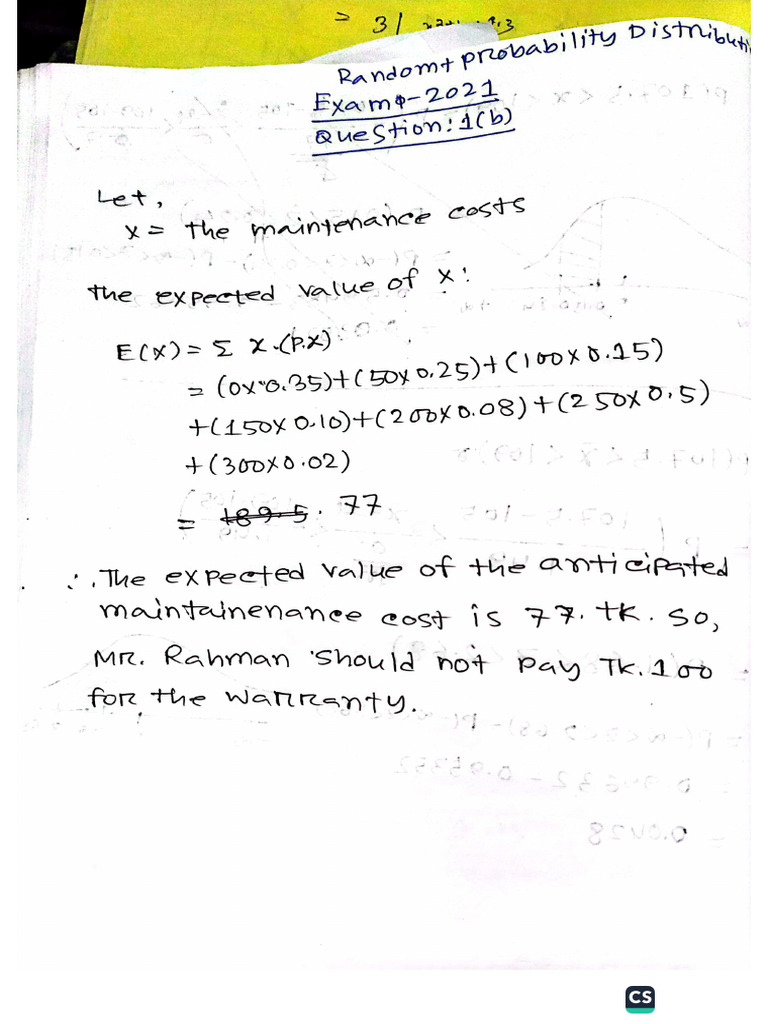 = 31
Random + probability Distributi
Exam - 2021
Question: 1(b)
Let,
x = the maintenance costs
the expected value of x:
E(X) = Σ x.(P.x)
= (0x0.35)+(50x0.25)+(100x0.15)
+(150x0.10)+(200x0.08)+(250x0.5)
+(300x0.02)
= 189.5. 77
∴ The expected value of the anticipated
maintainenance cost is 77. tk. So,
Mr. Rahman should not pay Tk.100
for the warranty.
CS